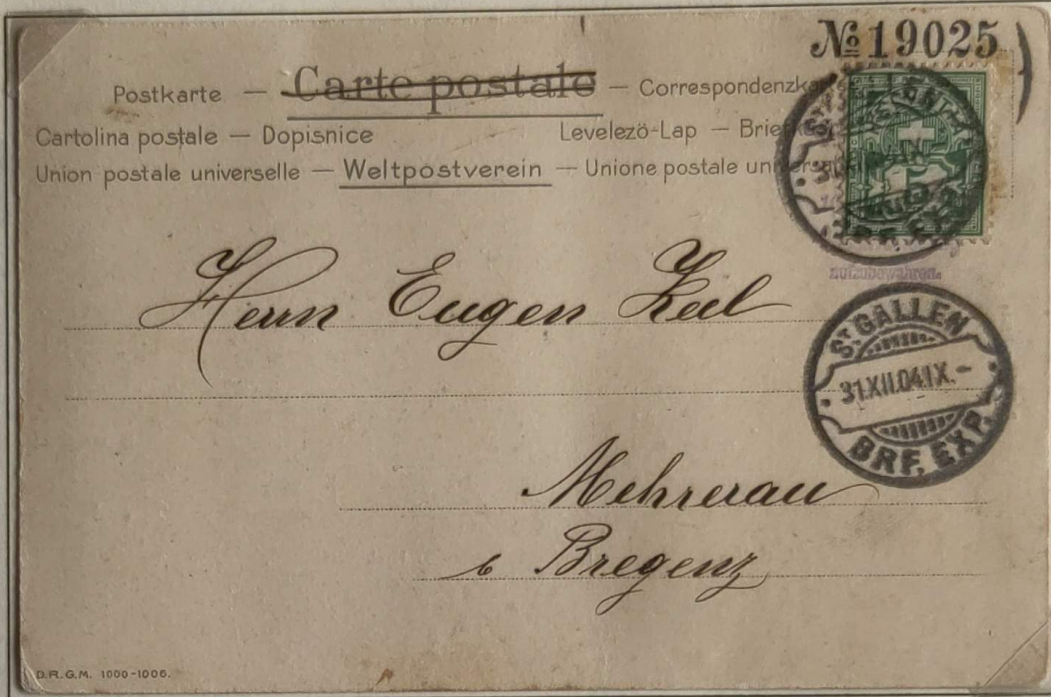 № 19025
Postkarte — Carte postale — Correspondenzka
Cartolina postale — Dopisnice Levelezö-Lap —
Union postale universelle — Weltpostverein — Unione postale
aufzubewahren.
Herrn Eugen Zeel
ST GALLEN
31.XII.04.IX.-
BRF. EXP.
Mehrerau
b Bregenz
D.R.G.M. 1000-1006.